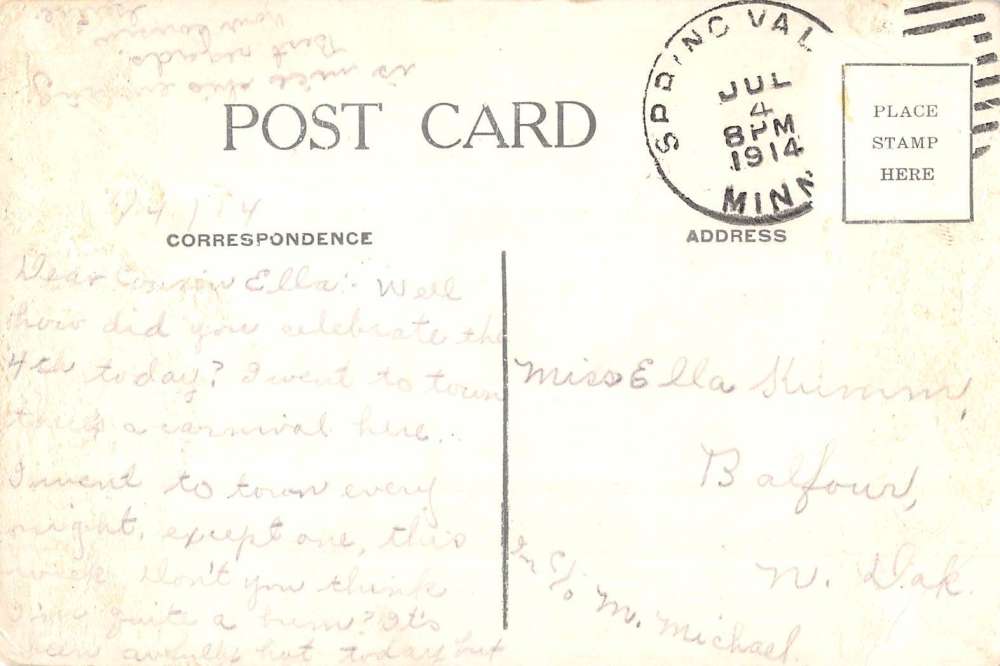 POST CARD
SPRING VAL
JUL
4
8PM
1914
MINN
PLACE
STAMP
HERE
7/4/14
CORRESPONDENCE
ADDRESS
Dear Cousin Ella:- Well
how did you celebrate the
4th today? I went to town
a carnival here.
I went to town every
night, except one, this
week. Don't you think
I'm quite a bum? It's
been awfully hot today but
is nice this evening
Best regards,
Your cousin
Miss Ella Kumm,
Balfour,
N. Dak.
In c/o M. Michael.